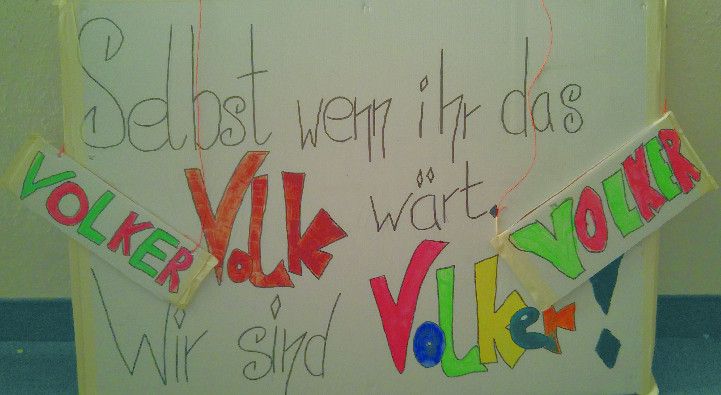 Selbst wenn ihr das
VOLKER
Volk wärt.
VOLKER
Wir sind Volker!